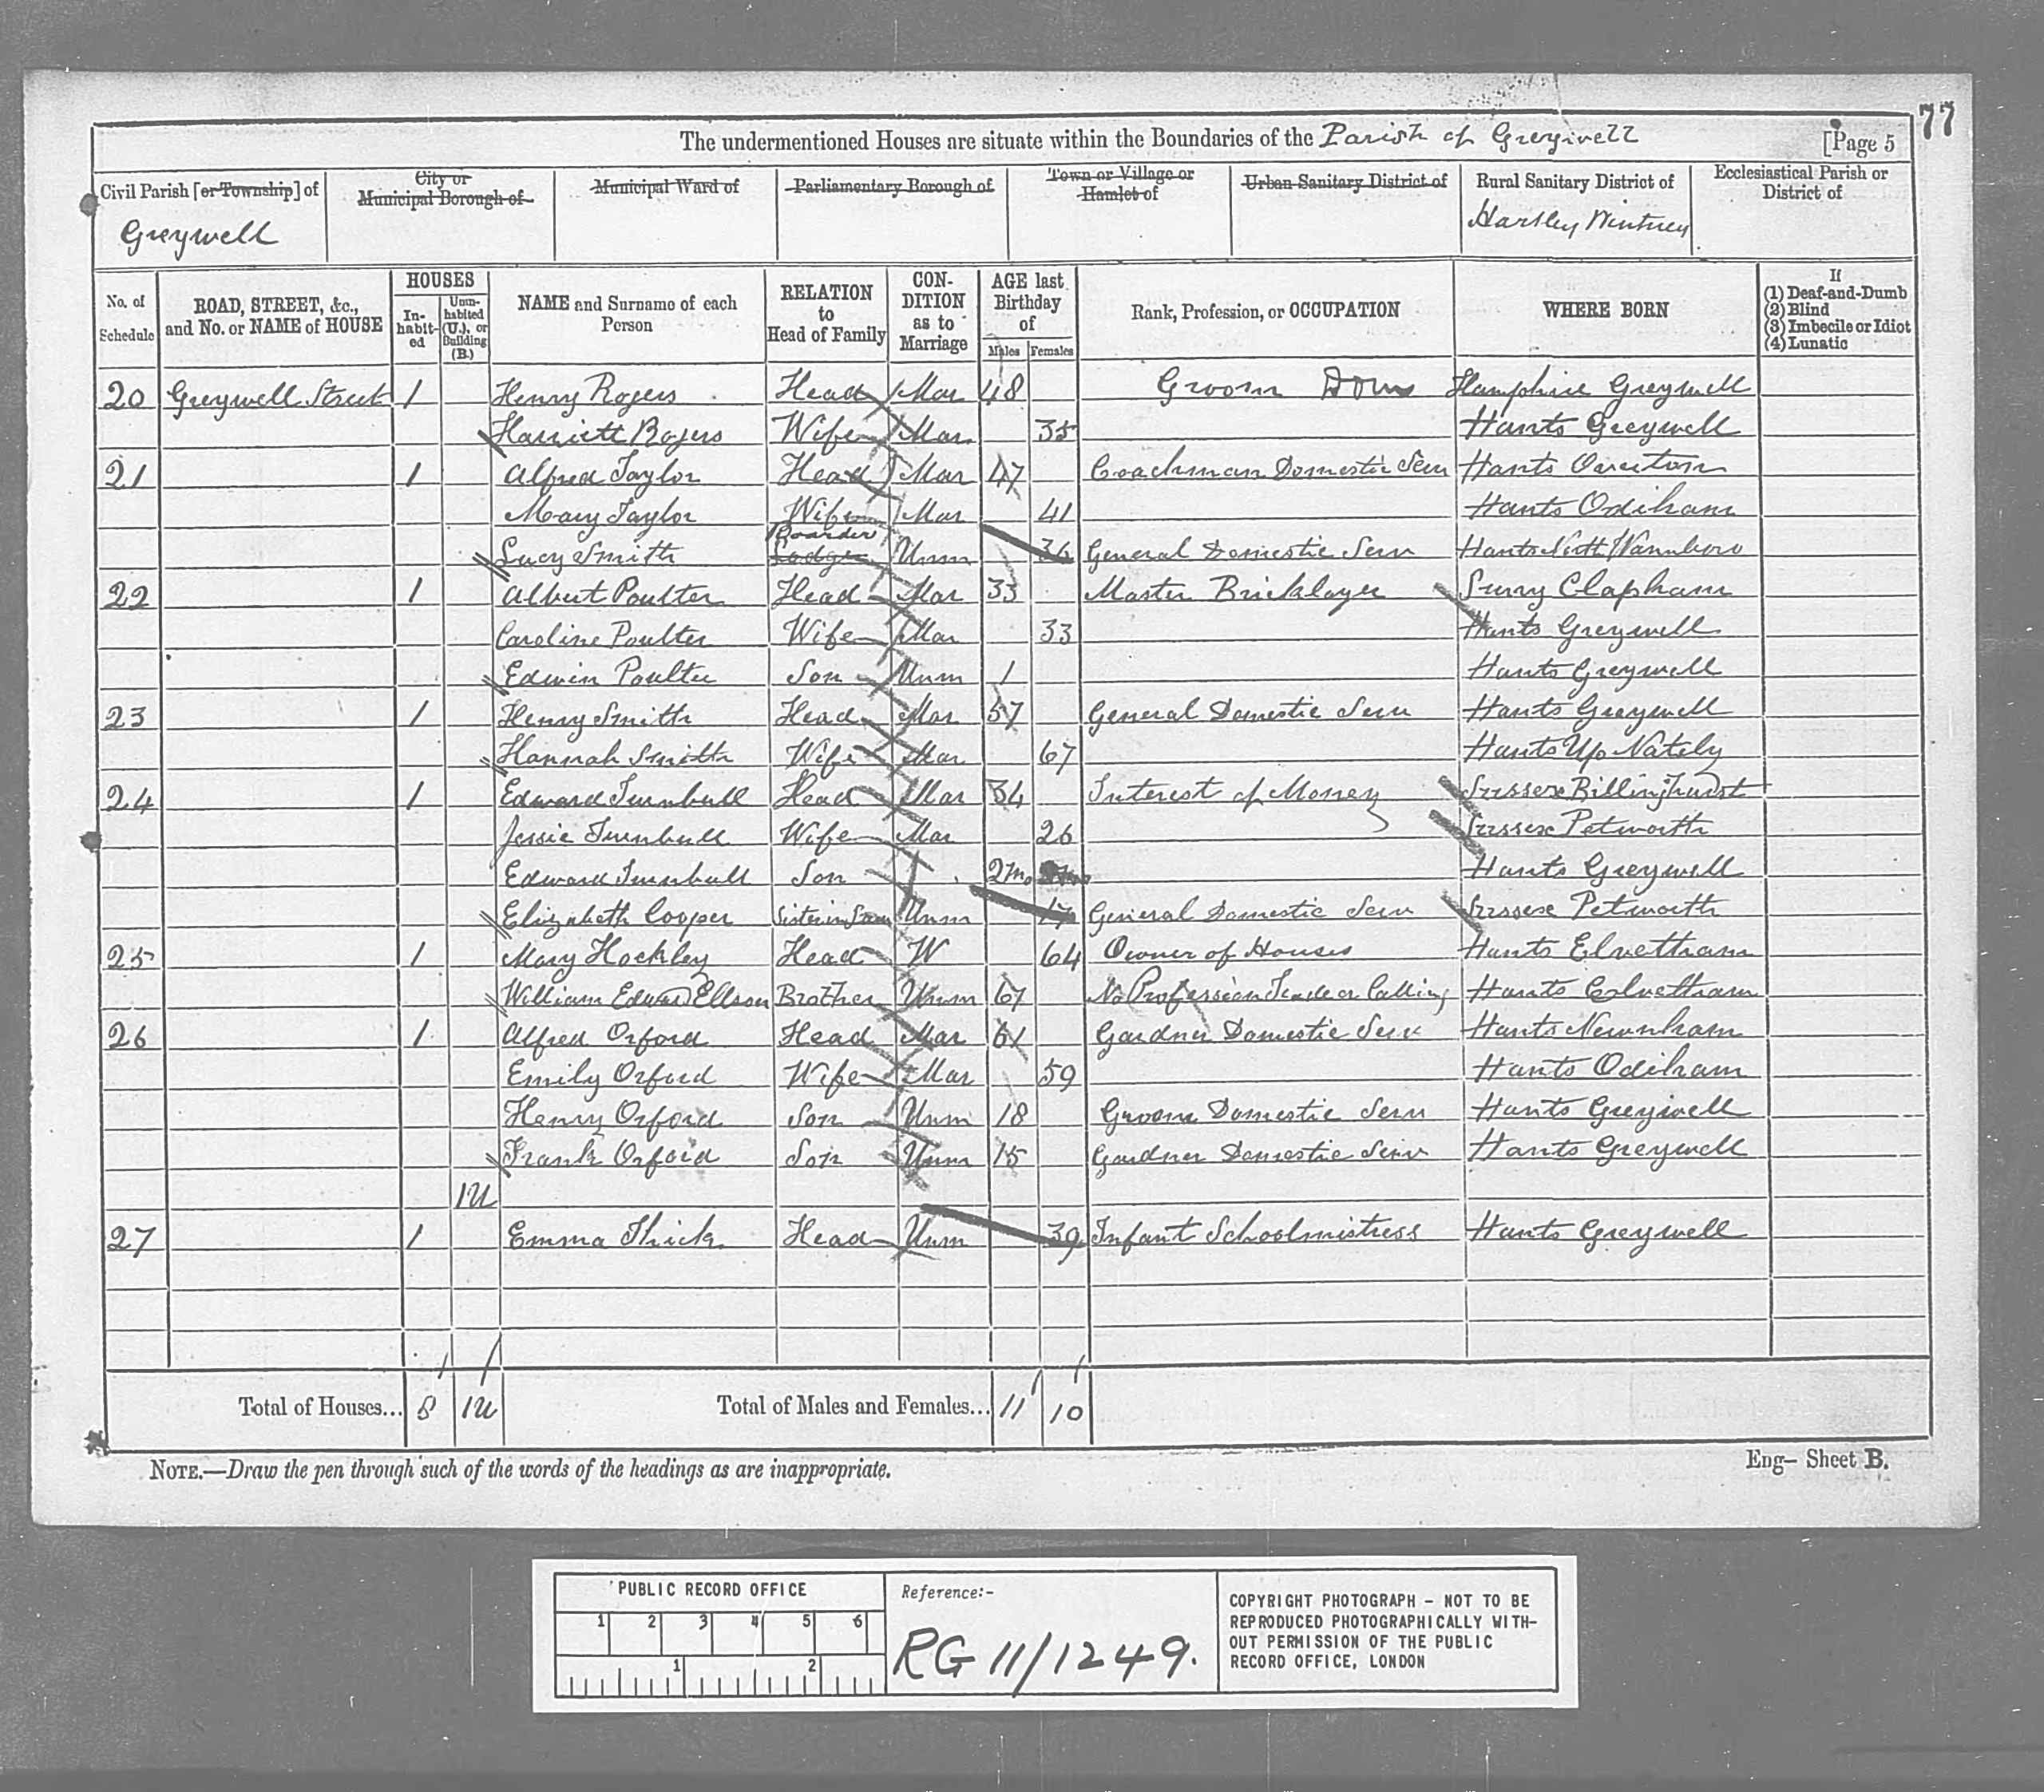 77
The undermentioned Houses are situate within the Boundaries of the Parish of Greywell [Page 5
Civil Parish [or Township] of Greywell
City or Municipal Borough of
Municipal Ward of
Parliamentary Borough of
Town or Village or Hamlet of
Urban Sanitary District of
Rural Sanitary District of Hartley Wintney
Ecclesiastical Parish or District of
No. of Schedule
ROAD, STREET, &c., and No. or NAME of HOUSE
HOUSES
In-habit-ed
Unin-habited (U.), or Building (B.)
NAME and Surname of each Person
RELATION to Head of Family
CON-DITION as to Marriage
AGE last Birthday of
Males Females
Rank, Profession, or OCCUPATION
WHERE BORN
If
(1) Deaf-and-Dumb
(2) Blind
(3) Imbecile or Idiot
(4) Lunatic
20 Greywell Street 1 Henry Rogers Head Mar 48 Groom Dom Hampshire Greywell
Harriett Rogers Wife Mar 35 Hants Greywell
21 1 Alfred Taylor Head Mar 47 Coachman Domestic Serv Hants Overton
Mary Taylor Wife Mar 41 Hants Odiham
Lucy Smith Boarder Lodger Unm 36 General Domestic Serv Hants North Warnboro
22 1 Albert Poulter Head Mar 33 Master Bricklayer Surry Clapham
Caroline Poulter Wife Mar 33 Hants Greywell
Edwin Poulter Son Unm 1 Hants Greywell
23 1 Henry Smith Head Mar 57 General Domestic Serv Hants Greywell
Hannah Smith Wife Mar 67 Hants Up Nately
24 1 Edward Turnbull Head Mar 34 Interest of Money Sussex Billinghurst
Jessie Turnbull Wife Mar 26 Sussex Petworth
Edward Turnbull Son 2mo Hants Greywell
Elizabeth Cooper Sister in Law Unm 17 General Domestic Serv Sussex Petworth
25 1 Mary Hockley Head W 64 Owner of Houses Hants Elvetham
William Edward Ellson Brother Unm 67 No Profession Trade or Calling Hants Elvetham
26 1 Alfred Orford Head Mar 61 Gardner Domestic Serv Hants Newnham
Emily Orford Wife Mar 59 Hants Odiham
Henry Orford Son Unm 18 Groom Domestic Serv Hants Greywell
Frank Orford Son Unm 15 Gardner Domestic Serv Hants Greywell
1U
27 1 Emma Thick Head Unm 39 Infant Schoolmistress Hants Greywell
Total of Houses... 8 1U Total of Males and Females... 11 10
NOTE.—Draw the pen through such of the words of the headings as are inappropriate.
Eng— Sheet B.
PUBLIC RECORD OFFICE
1 2 3 4 5 6
1 2
Reference:-
RG 11/1249.
COPYRIGHT PHOTOGRAPH - NOT TO BE
REPRODUCED PHOTOGRAPHICALLY WITH-
OUT PERMISSION OF THE PUBLIC
RECORD OFFICE, LONDON